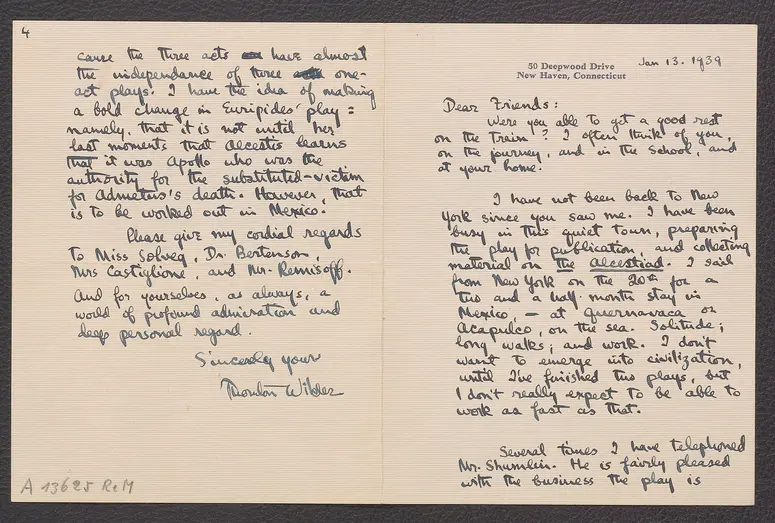 4
cause the three acts have almost
the independance of three one-
act plays. I have the idea of making
a bold change in Euripides' play:
namely, that it is not until her
last moments that Alcestis learns
that it was Apollo who was the
authority for the substituted-victim
for Admetus's death. However, that
is to be worked out in Mexico.
Please give my cordial regards
to Miss Solveg, Dr. Bertenson,
Mrs Castiglione, and Mr. Remisoff.
And for yourselves, as always, a
world of profound admiration and
deep personal regard.
Sincerely your
Thornton Wilder
A 13625 ReM
50 Deepwood Drive
New Haven, Connecticut
Jan 13. 1939
Dear Friends:
Were you able to get a good rest
on the train? I often think of you,
on the journey, and in the school, and
at your home.
I have not been back to New
York since you saw me. I have been
busy in this quiet town, preparing
the play for publication, and collecting
material on the Alcestiad. I sail
from New York on the 20th for a
two and a half month stay in
Mexico, – at Quernavaca or
Acapulco, on the sea. Solitude;
long walks; and work. I don't
want to emerge into civilization,
until I've finished two plays, but
I don't really expect to be able to
work as fast as that.
Several times I have telephoned
Mr. Shumlin. He is fairly pleased
with the business the play is